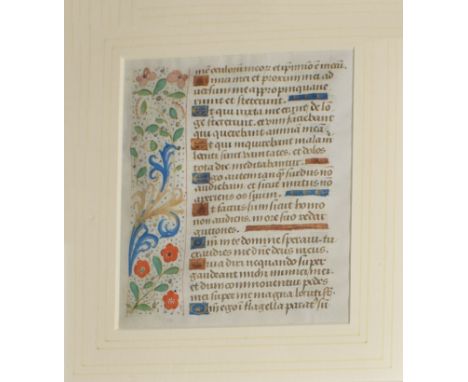 mē oculorū meor et ipm nō ē mecū.
Amici mei et proximi mei ad
uersum me appropinquaue
runt et steterunt.
Et qui iuxta me erāt de lon
ge steterunt. et uim faciebant
qui querebant animā meā.
Et qui inquirebant mala m
locuti sunt uanitates. et dolos
tota die meditabantur.
Ego autem tanq̄ surdus nō
audiebam et sicut mutus nō
aperiens os suum.
Et factus sum sicut homo
non audiens. in ore suo redar
gutiones.
Qm in te domine speraui. tu
exaudies me dn̄e deus meus.
Quia dixi nequando super
gaudeant michi inimici mei.
et dum commouentur pedes
mei super me magna locuti st̄.
Qm ego in flagella parat⁹ sū